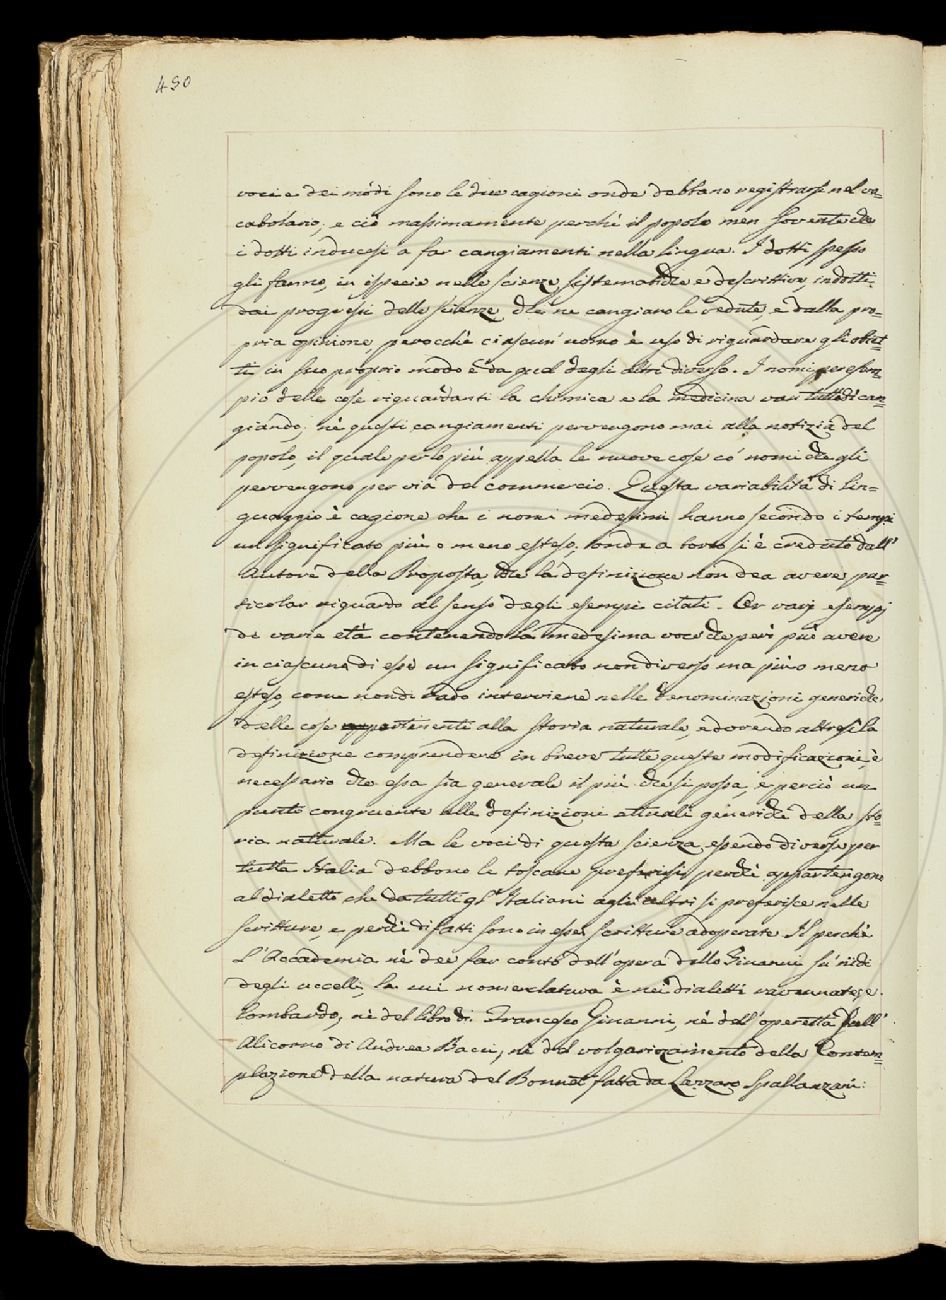 450
voci e dei modi sono le due cagioni onde debbano registrarsi nel vo=
cabolario; e ciò massimamente perchè il popolo men sovente che
i dotti inducesi a far cangiamenti nella lingua. I dotti spesso
gli fanno, in ispecie nelle scienze sistematiche e descrittive, indotti
dai progressi delle scienze, che ne cangiano le vedute, e dalla pro=
pria opinione, perocchè ciascun' uomo è uso di riguardare gli obiet=
ti in suo proprio modo e da quel degli altri diverso. I nomi per esem=
pio delle cose riguardanti la chimica e la medicina van tutto dì can=
giando; nè questi cangiamenti pervengono mai alla notizia del
popolo, il quale per lo più appella le nuove cose co' nomi che gli
pervengono per via del commercio. Questa variabilità di lin=
guaggio è cagione che i nomi medesimi hanno secondo i tempi
un significato più o meno esteso, onde a torto si è creduto dall'
Autore della Proposta, che la definizione non dea avere par=
ticolar riguardo al senso degli esempi citati. Or varj esempj
di varie età contenendo la medesima voce che però può avere
in ciascuno di essi un significato non diverso ma più o meno
esteso, come non di rado interviene nelle denominazioni generiche
delle cose appartenenti alla storia naturale, e dovendo altresì la
definizione comprendere in breve tutte queste modificazioni, è
necessario che essa sia generale il più che si possa, e perciò un
punto congruente alle definizioni attuali generiche della sto=
ria naturale. Ma le voci di questa scienza essendo diverse per
tutta Italia debbono le toscane preferirsi, perchè appartengono
al dialetto che da tutti gl' Italiani agli altri si preferisce nelle
scritture, e perchè di fatti sono in esse scritture adoperate. Il perchè
l'Accademia nè dee far conto dell'opera dello Ginanni su' nidi
degli uccelli, la cui nomenclatura è nei dialetti ravennate, e
lombardo; nè del libro di Francesco Ginanni, nè dell' operetta sull'
Alicorno di Andrea Bacci, nè del volgarizzamento della Contem=
plazione della natura del Bonnet fatta da Lazzaro Spallanzani: